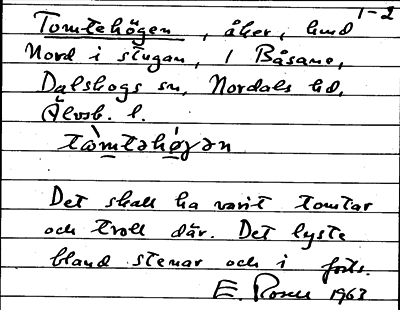 1-2
Tomtehögen, åker, hund
Nord i stugan, 1 Båsane,
Dalskogs sn, Nordals hd,
Älvsb. l.
tòmtəhǿgən
Det skall ha varit tomtar
och troll där. Det lyste
bland stenar och i
E. Rosell 1963